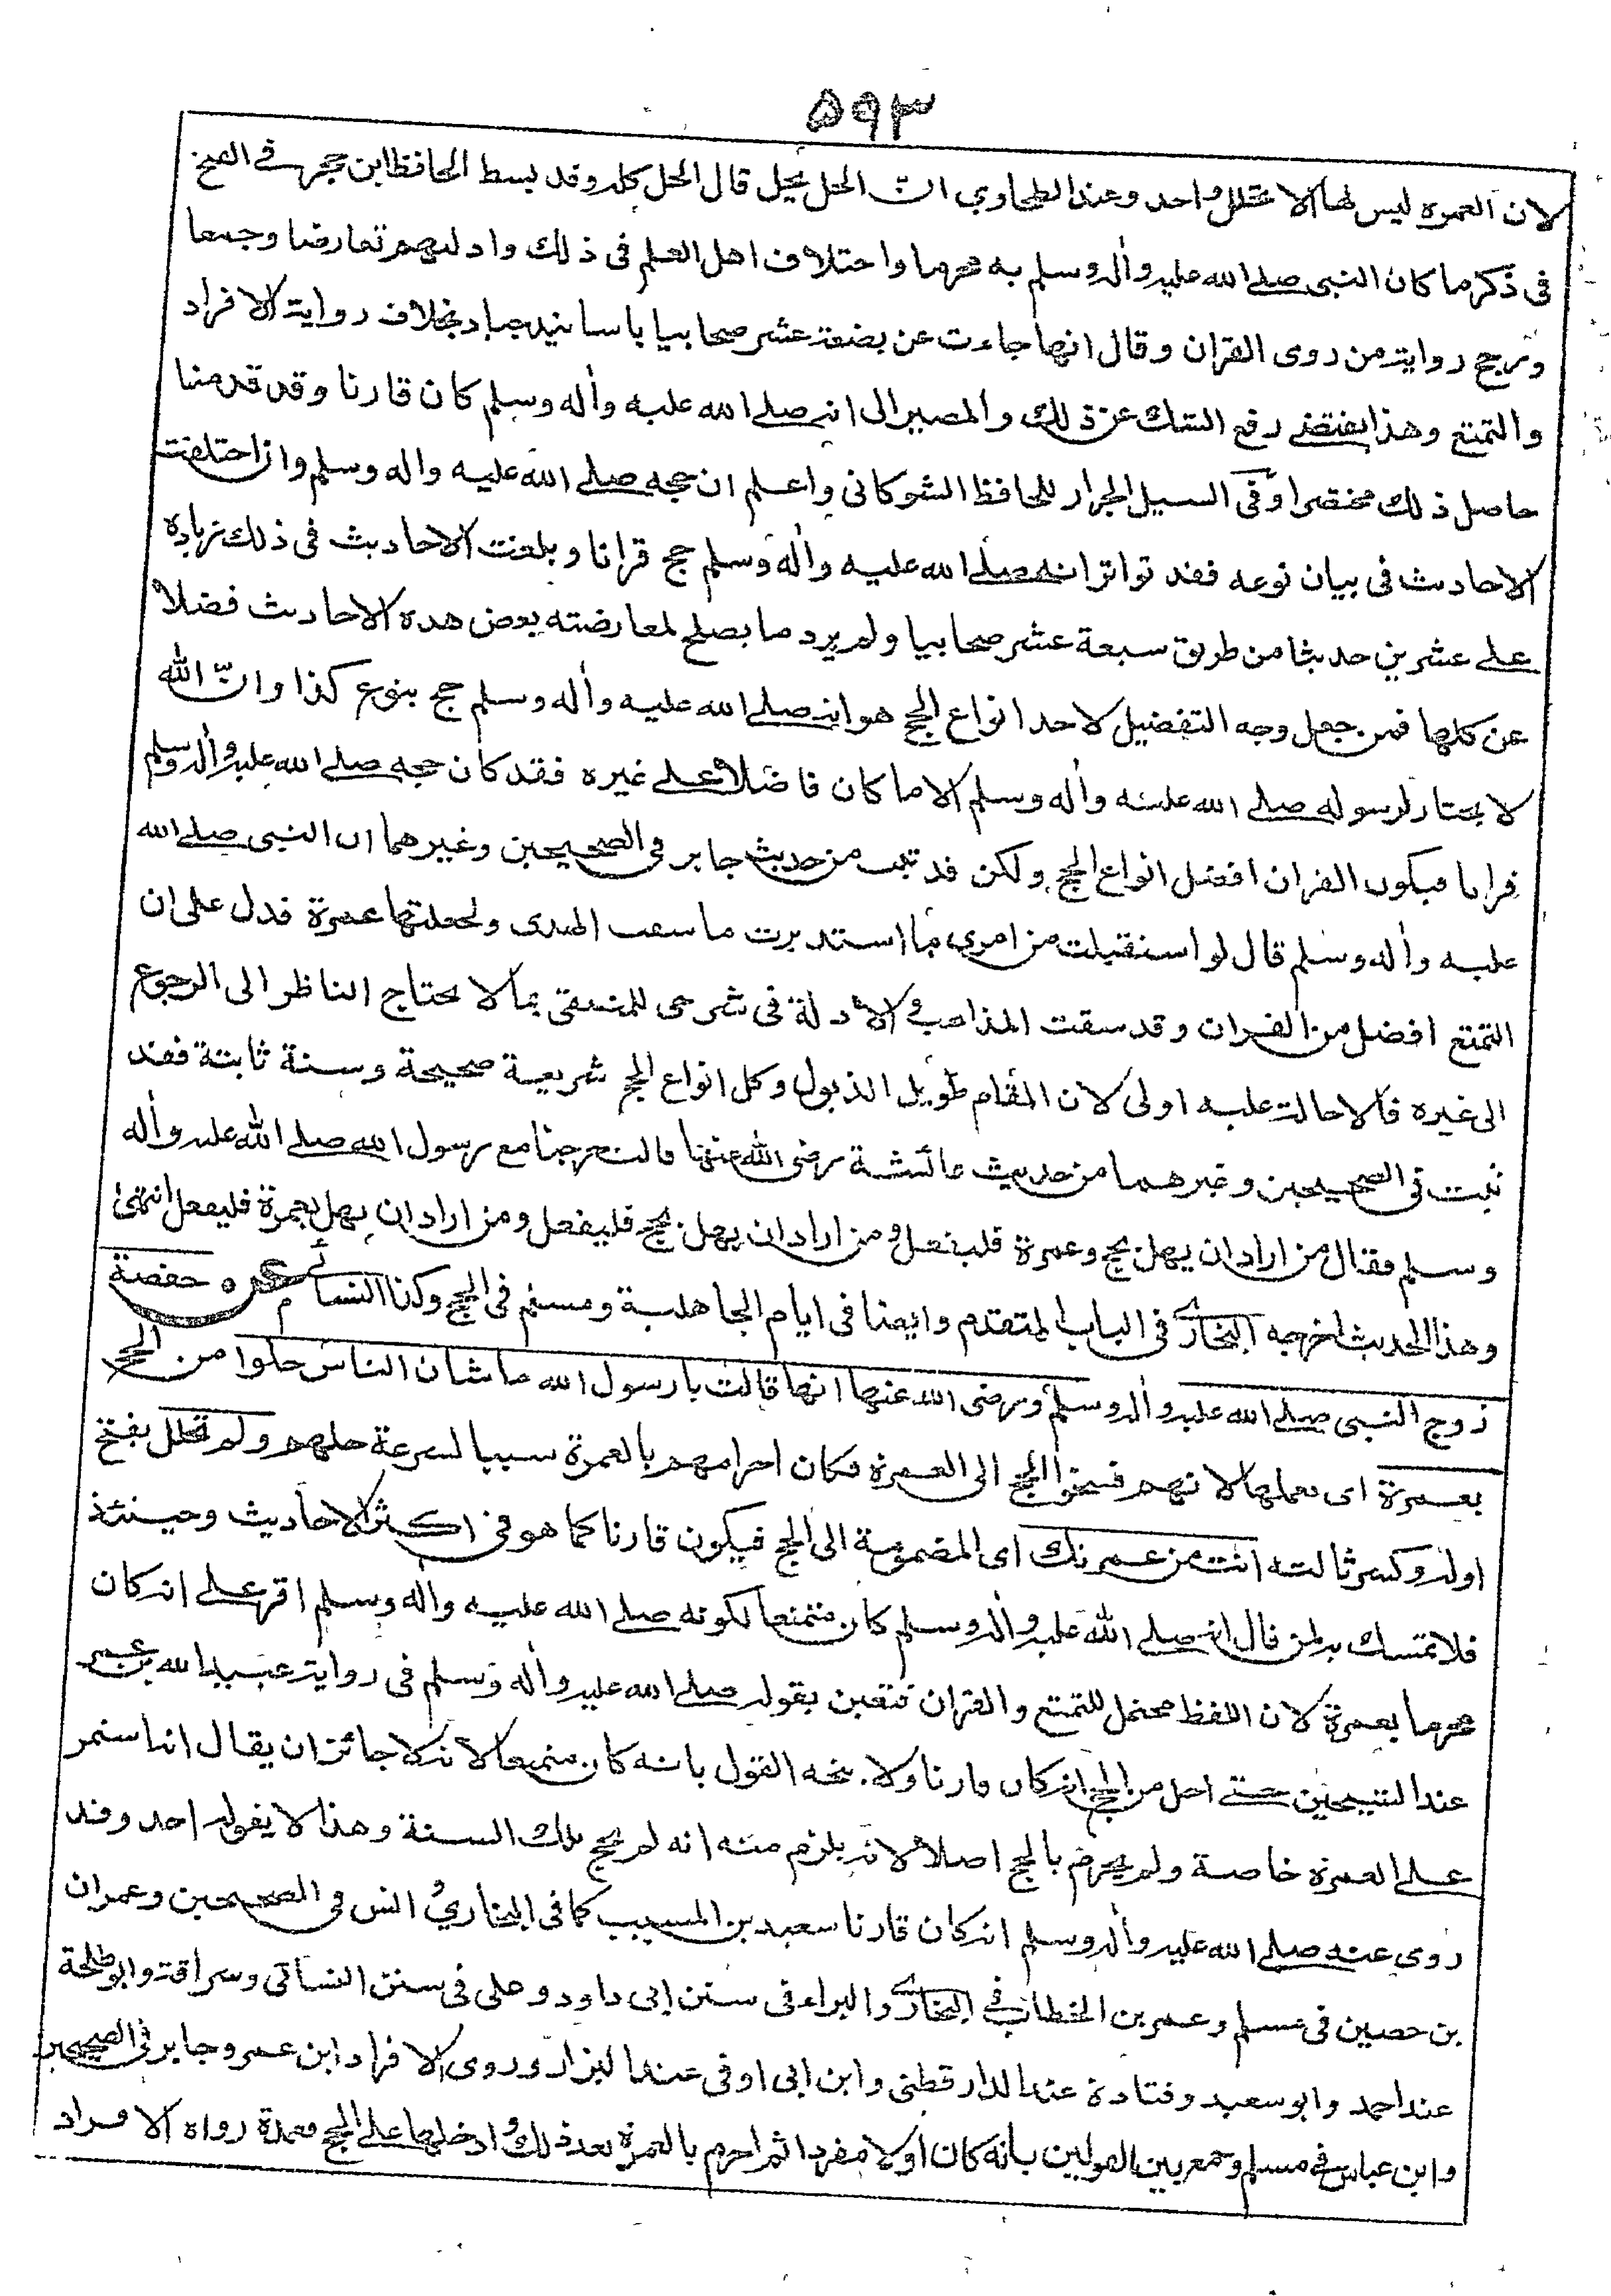 ۵۹۳
لان العمرة ليس لها الا تحلل واحد وعند الطحاوي اىّ الحل يحل قال الحل كله وقد بسط الحافظ ابن حجر فى الفتح
فى ذكر ما كان النبى صلے الله عليه وأله وسلم به محرما واختلاف اهل العلم فى ذلك وادلتهم تعارضا وجمعا
ورجح رواية من روى القران وقال انها جاءت عن بضعة عشر صحابيا باسانيد جياد بخلاف رواية الافراد
والتمتع وهذا يقتضے رفع الشك عن ذلك والمصير الى انه صلے الله عليه وأله وسلم كان قارنا وقد قدمنا
حاصل ذلك مختصرا وفى السيل الجرار للحافظ الشوكانى واعلم ان حجه صلے الله عليه واله وسلم وان اختلفت
الاحاديث فى بيان نوعه فقد تواتر انه صلے الله عليه وأله وسلم حج قرانا وبلغت الاحاديث فى ذلك زيادة
علے عشرين حديثا من طريق سبعة عشر صحابيا ولم يرد ما يصلح لمعارضته بعض هذه الاحاديث فضلا
عن كلها فمن جعل وجه التفضيل لاحد انواع الحج هو انه صلے الله عليه وأله وسلم حج بنوع كذا وانّ الله
لا يختار لرسوله صلے الله عليه وأله وسلم الا ما كان فاضلا علے غيره فقد كان حجه صلے الله عليه وأله وسلم
قرانا فيكون القران افضل انواع الحج ولكن قد ثبت من حديث جابر فى الصحيحين وغيرهما ان النبى صلے الله
عليه وأله وسلم قال لو استقبلت من امرى ما استدبرت ما سقت الهدى ولجعلتها عمرة فدل على ان
التمتع افضل من القران وقد سقت المذاهب والادلة فى شرحى للمنتقى بما لا يحتاج الناظر الى الرجوع
الى غيره فالاحالة عليه اولى لان المقام طويل الذيول وكل انواع الحج شريعة صحيحة وسنة ثابتة فقد
ثبت فى الصحيحين وغيرهما من حديث عائشة رضى الله عنها قالت خرجنا مع رسول الله صلے الله عليه وأله
وسلم فقال من اراد ان يهل بحج وعمرة فليفعل ومن اراد ان يهل بحج فليفعل ومن اراد ان يهل بعمرة فليفعل انتهىٰ
وهذا الحديث اخرجه البخارى فى الباب المتقدم وايضا فى ايام الجاهلية ومسلم فى الحج وكذا النسائى عن حفصة
زوج النبى صلے الله عليه وأله وسلم ورضى الله عنها انها قالت يا رسول الله ما شان الناس حلوا من الحج
بعمرة اى بعملها لانهم فسخوا الحج الى العمرة فكان احرامهم بالعمرة سببا لسرعة حلهم ولم تحلل بفتح
اوله وكسر ثالثه انت من عمرتك اى المضمومة الى الحج فيكون قارنا كما هو فى اكثر الاحاديث وحينئذ
فلا تمسك به لمن قال انه صلے الله عليه وأله وسلم كان متمتعا لكونه صلے الله عليه واله وسلم اقر علے انه كان
محرما بعمرة لان اللفظ محتمل للتمتع والقران فتعين بقوله صلے الله عليه وأله وسلم فى رواية عبيد الله بن عمر
عند الشيخين حتے احل من الحج انه كان قارنا ولا يتجه القول بانه كان متمتعا لانه لا جائز ان يقال انه استمر
علے العمرة خاصة ولم يحرم بالحج اصلا لانه يلزم منه انه لم يحج تلك السنة وهذا لا يقوله احد وقد
روى عنه صلے الله عليه وأله وسلم انه كان قارنا سعيد بن المسيب كما فى البخارى وانس فى الصحيحين وعمران
بن حصين فى مسلم وعمر بن الخطاب فى البخارى والبراء فى سنن ابى داود وعلى فى سنن النسائى وسراقة وابو طلحة
عند احمد وابو سعيد وقتادة عند الدارقطنى وابن ابى اوفى عند البزار وروى الافراد ابن عمر وجابر فى الصحيحين
وابن عباس فى مسلم وجمع بين القولين بانه كان اولا مفردا ثم احرم بالعمرة بعد ذلك وادخلها على الحج فعمدة رواة الافراد